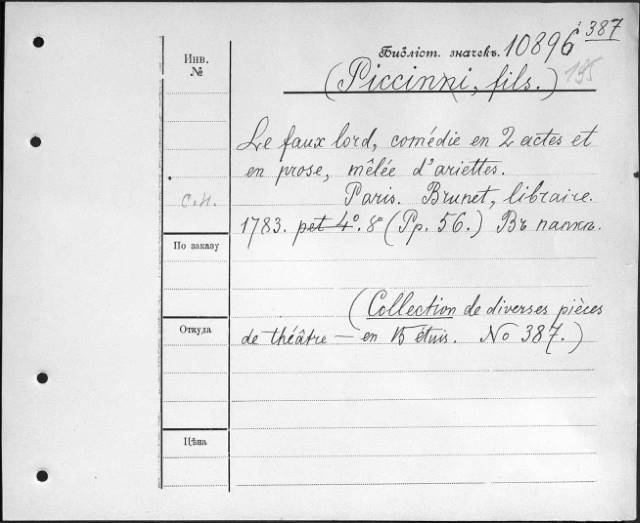 Инв.
№
Библіот. значекъ. 10896 387
(Piccinni, fils.) 195
Le faux lord, comédie en 2 actes et
en prose, mêlée d'ariettes.
Paris. Brunet, libraire.
С.Н.
1783. pet 4º. 8º (Pp. 56.) Въ папкѣ.
По заказу
(Collection de diverses pièces
Откуда
de théâtre — en 15 étuis. No 387.)
Цѣна